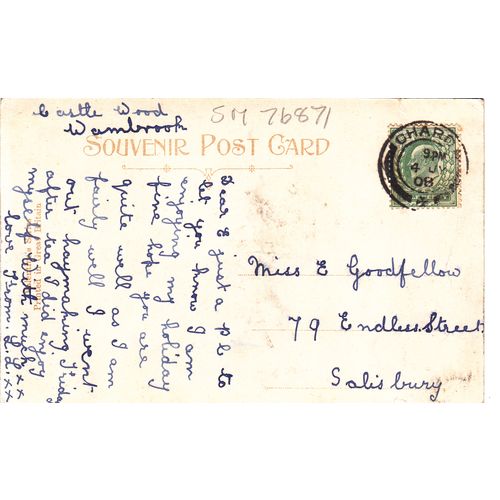 Castle Wood
Wambrook
SM 76871
SOUVENIR POST CARD
CHARD
9 PM
4 J
08
Dear E just a p c to
let you know I am
enjoying my holiday
fine hope you are
quite well as I am
fairly well I went
out haymaking Friday
after tea I did enjoy
myself with much
love from
xx
Printed in Great Britain
Miss E Goodfellow
79 Endless Street
Salisbury